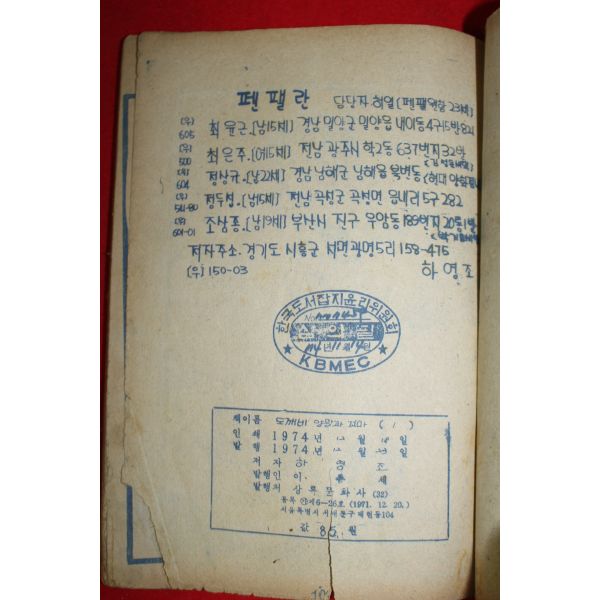 펜팰란 담당자 허일 [펜팰원함 23세]
(우) 605 최윤근. [남15세] 경남 밀양군 밀양읍 내이동 4구5반 82
(우) 500 최은주. [여15세] 전남 광주시 학2동 637번지 32반
(우) 604 정상규. [남22세] 경남 남해군 남해읍
(우) 정두성. [남15세] 전남 곡성군 곡성면 읍내리 5구 282
(우) 601-01 조상흥. [남19세] 부산시 진구 우암동 189번지 20통 1반
저자주소. 경기도 시흥군 서면 광명5리 158-475
(우) 150-03 하영조
한국도서잡지윤리위원회
KBMEC
책이름 도깨비 양말과 꼬마 (1)
인쇄 1974年 月 日
발행 1974年 月 日
저자 하영조
발행인 이 세
발행처 상록문화사 (32)
등록 제6-26호 (1971. 12. 20.)
서울특별시 서대문구 104
값 85 원